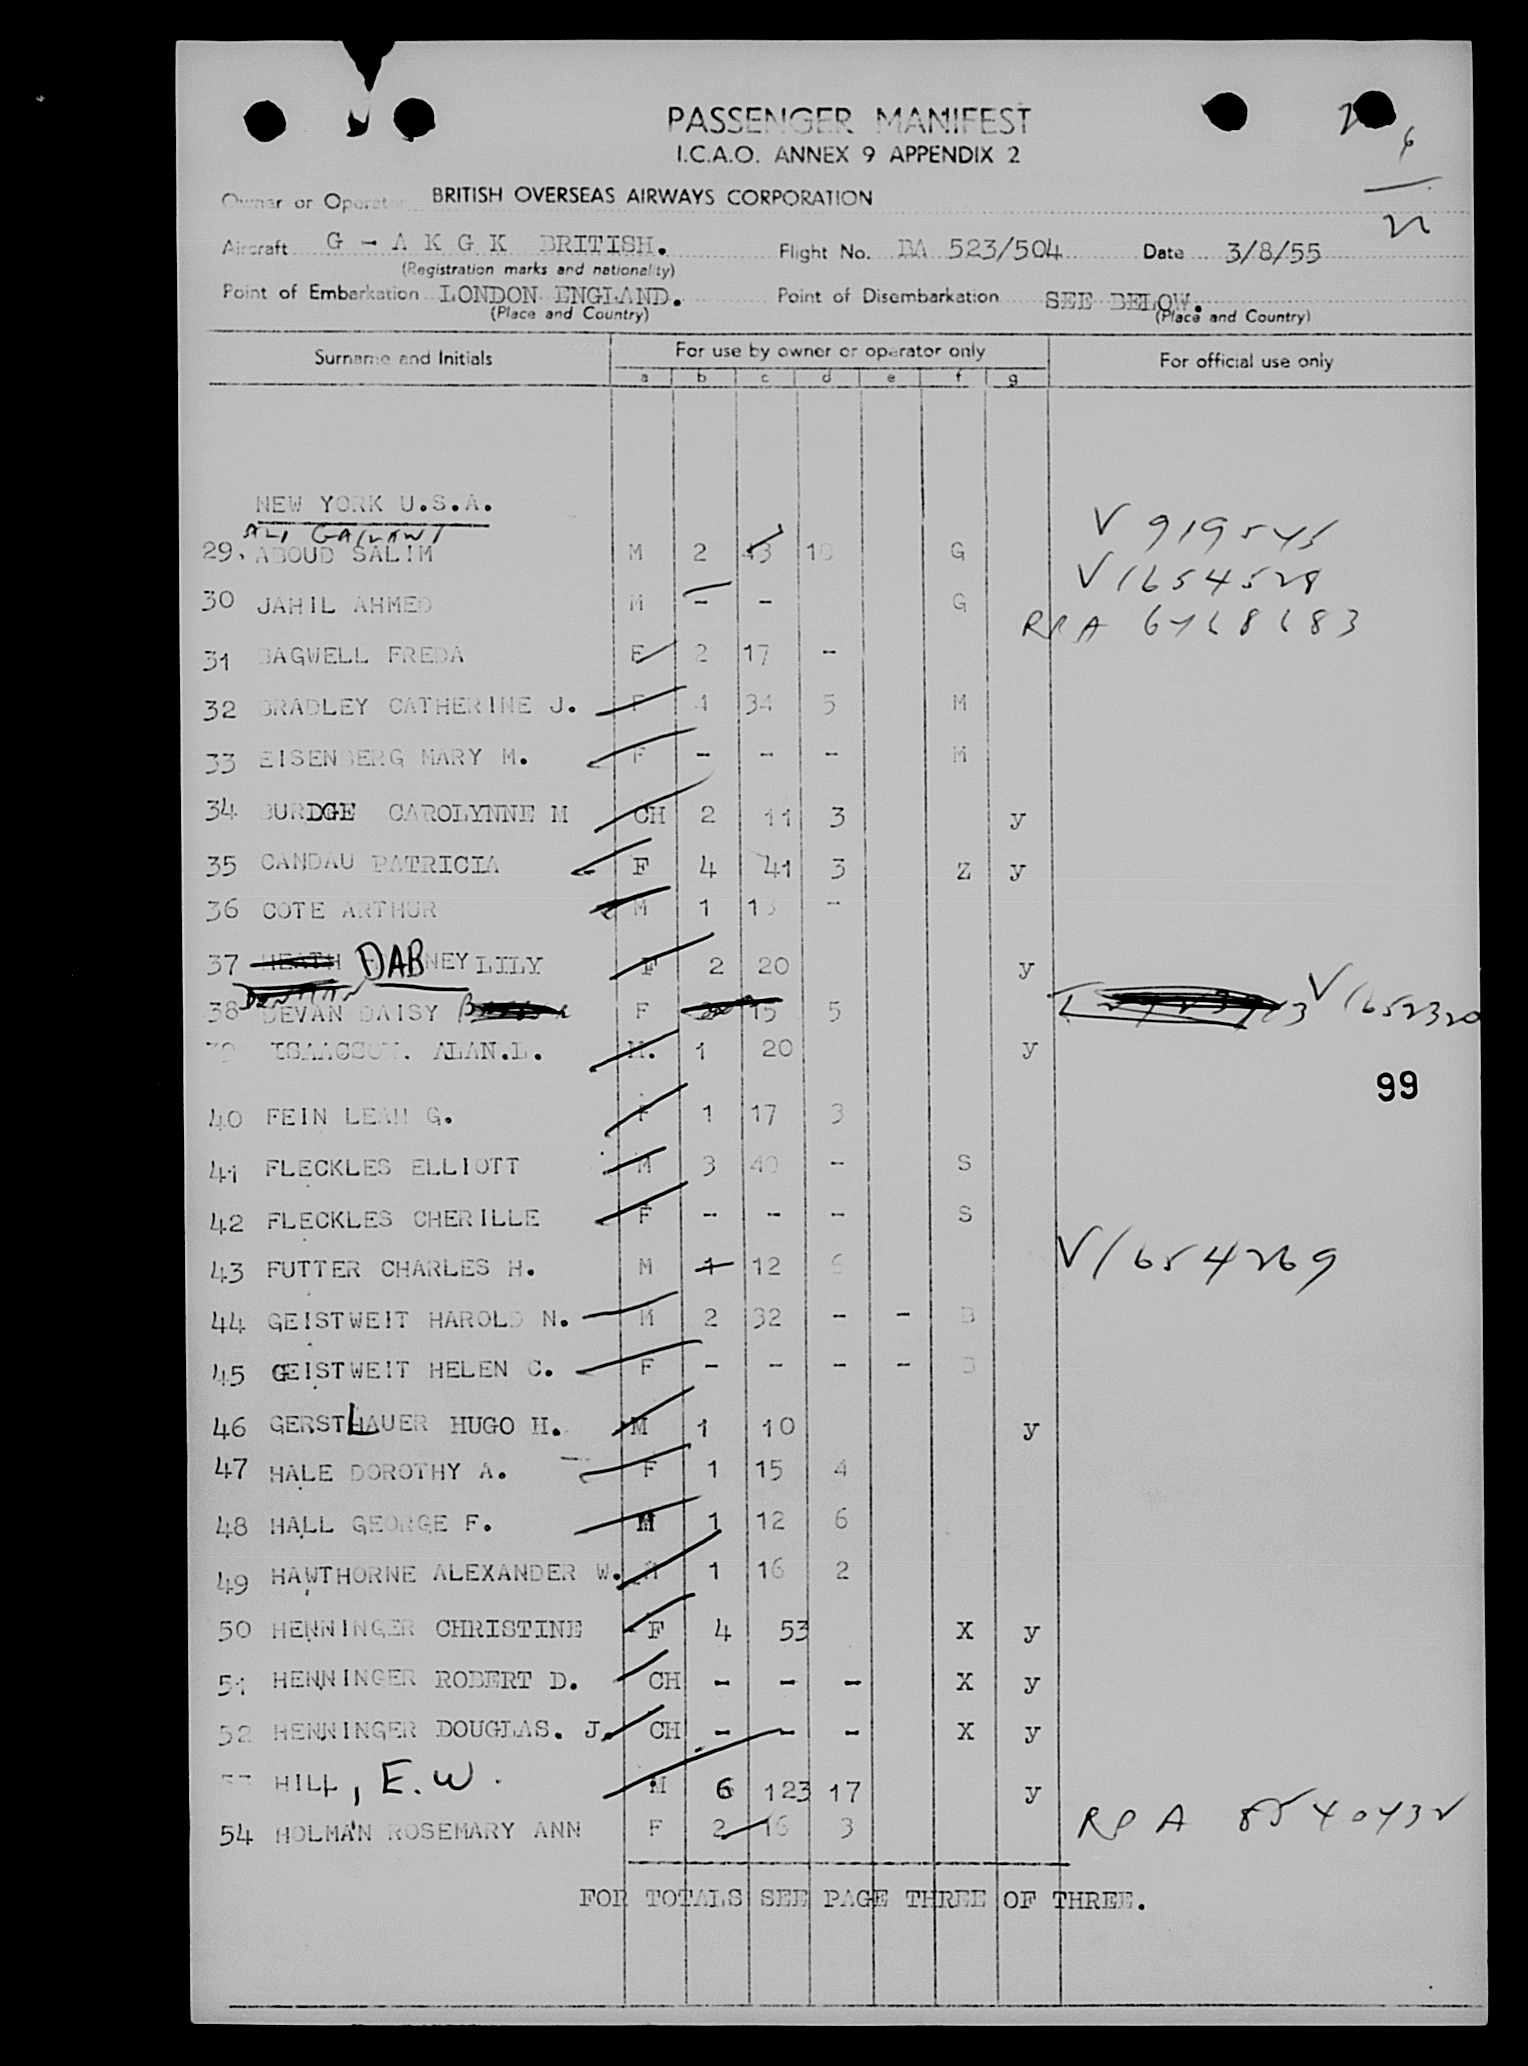 PASSENGER MANIFEST
I.C.A.O. ANNEX 9 APPENDIX 2
Owner or Operator BRITISH OVERSEAS AIRWAYS CORPORATION
Aircraft G - A K G K BRITISH. Flight No. BA 523/504 Date 3/8/55
(Registration marks and nationality)
Point of Embarkation LONDON ENGLAND. Point of Disembarkation SEE BELOW.
(Place and Country) (Place and Country)
Surname and Initials For use by owner or operator only For official use only
a b c d e f g
NEW YORK U.S.A.
ALI GAILAWI
29. ABOUD SALIM M 2 43 10 G V 919545
V1654528
30 JAHIL AHMED M - - G
RPA 6768683
31 BAGWELL FREDA F 2 17 -
32 BRADLEY CATHERINE J. F 4 34 5 M
33 EISENBERG MARY M. F - - - M
34 BURDGE CAROLYNNE M CH 2 11 3 y
35 CANDAU PATRICIA F 4 41 3 Z y
36 COTE ARTHUR M 1 13 -
37 HEATH DABNEY LILY F 2 20 y
DENMAN
38 DEVAN DAISY F 15 5 V1652320
39 ISAACSON. ALAN.L. M. 1 20 y
99
40 FEIN LEAH G. F 1 17 3
41 FLECKLES ELLIOTT M 3 40 - S
42 FLECKLES CHERILLE F - - - S
43 FUTTER CHARLES H. M 1 12 6 V1654269
44 GEISTWEIT HAROLD N. M 2 32 - - B
45 GEISTWEIT HELEN C. F - - - - B
46 GERSTLAUER HUGO H. M 1 10 y
47 HALE DOROTHY A. F 1 15 4
48 HALL GEORGE F. M 1 12 6
49 HAWTHORNE ALEXANDER W. M 1 16 2
50 HENNINGER CHRISTINE F 4 53 X y
51 HENNINGER ROBERT D. CH - - - X y
52 HENNINGER DOUGLAS. J. CH - - - X y
53 HILL, E.W. M 6 123 17 y
54 HOLMAN ROSEMARY ANN F 2 16 3 RPA 8540432
FOR TOTALS SEE PAGE THREE OF THREE.